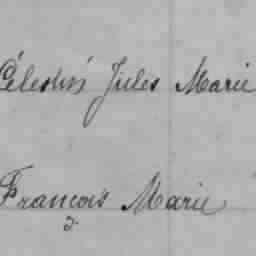 Célestin Jules Marie
François Marie